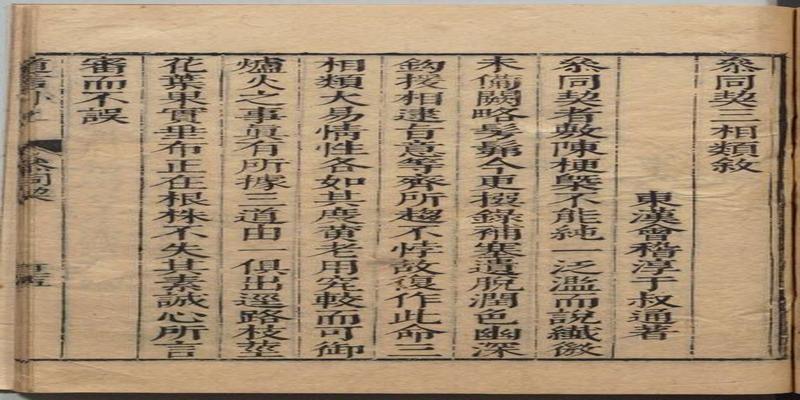 叅同契三相類敘
東漢會稽淳于叔通著
叅同契者敷陳梗槩不能純一泛濫而說纖微
未備闕略髣髴今更撰錄補塞遺脫潤色幽深
鉤援相逮旨意等齊所趨不悖故復作此命三
相類大易情性各如其度黄老用究較而可御
爐火之事眞有所據三道由一俱出逕路枝莖
花葉果實垂布正在根株不失其素誠心所言
審而不誤
叅同契